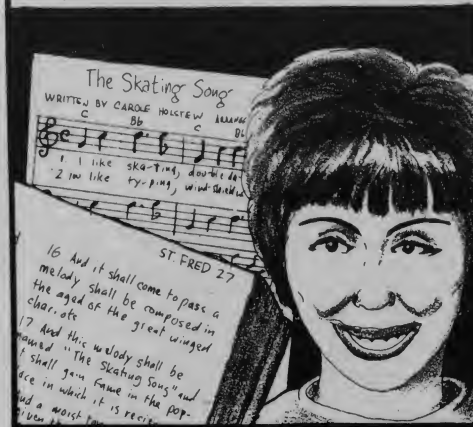 The Skating Song
WRITTEN BY CAROLE HOLSTEW ARRANGE
C Bb C Bb
1. I like ska-ting, double da
2 in like ty-ping, wind shield w
ST. FRED 27
16 And it shall come to pass a
melody shall be composed in
the aged of the great winged
chariots
17 And this melody shall be
named "The Skating Song" and
t shall gain fame in the pop-
ace in which it is reci
nd a moist
iven th